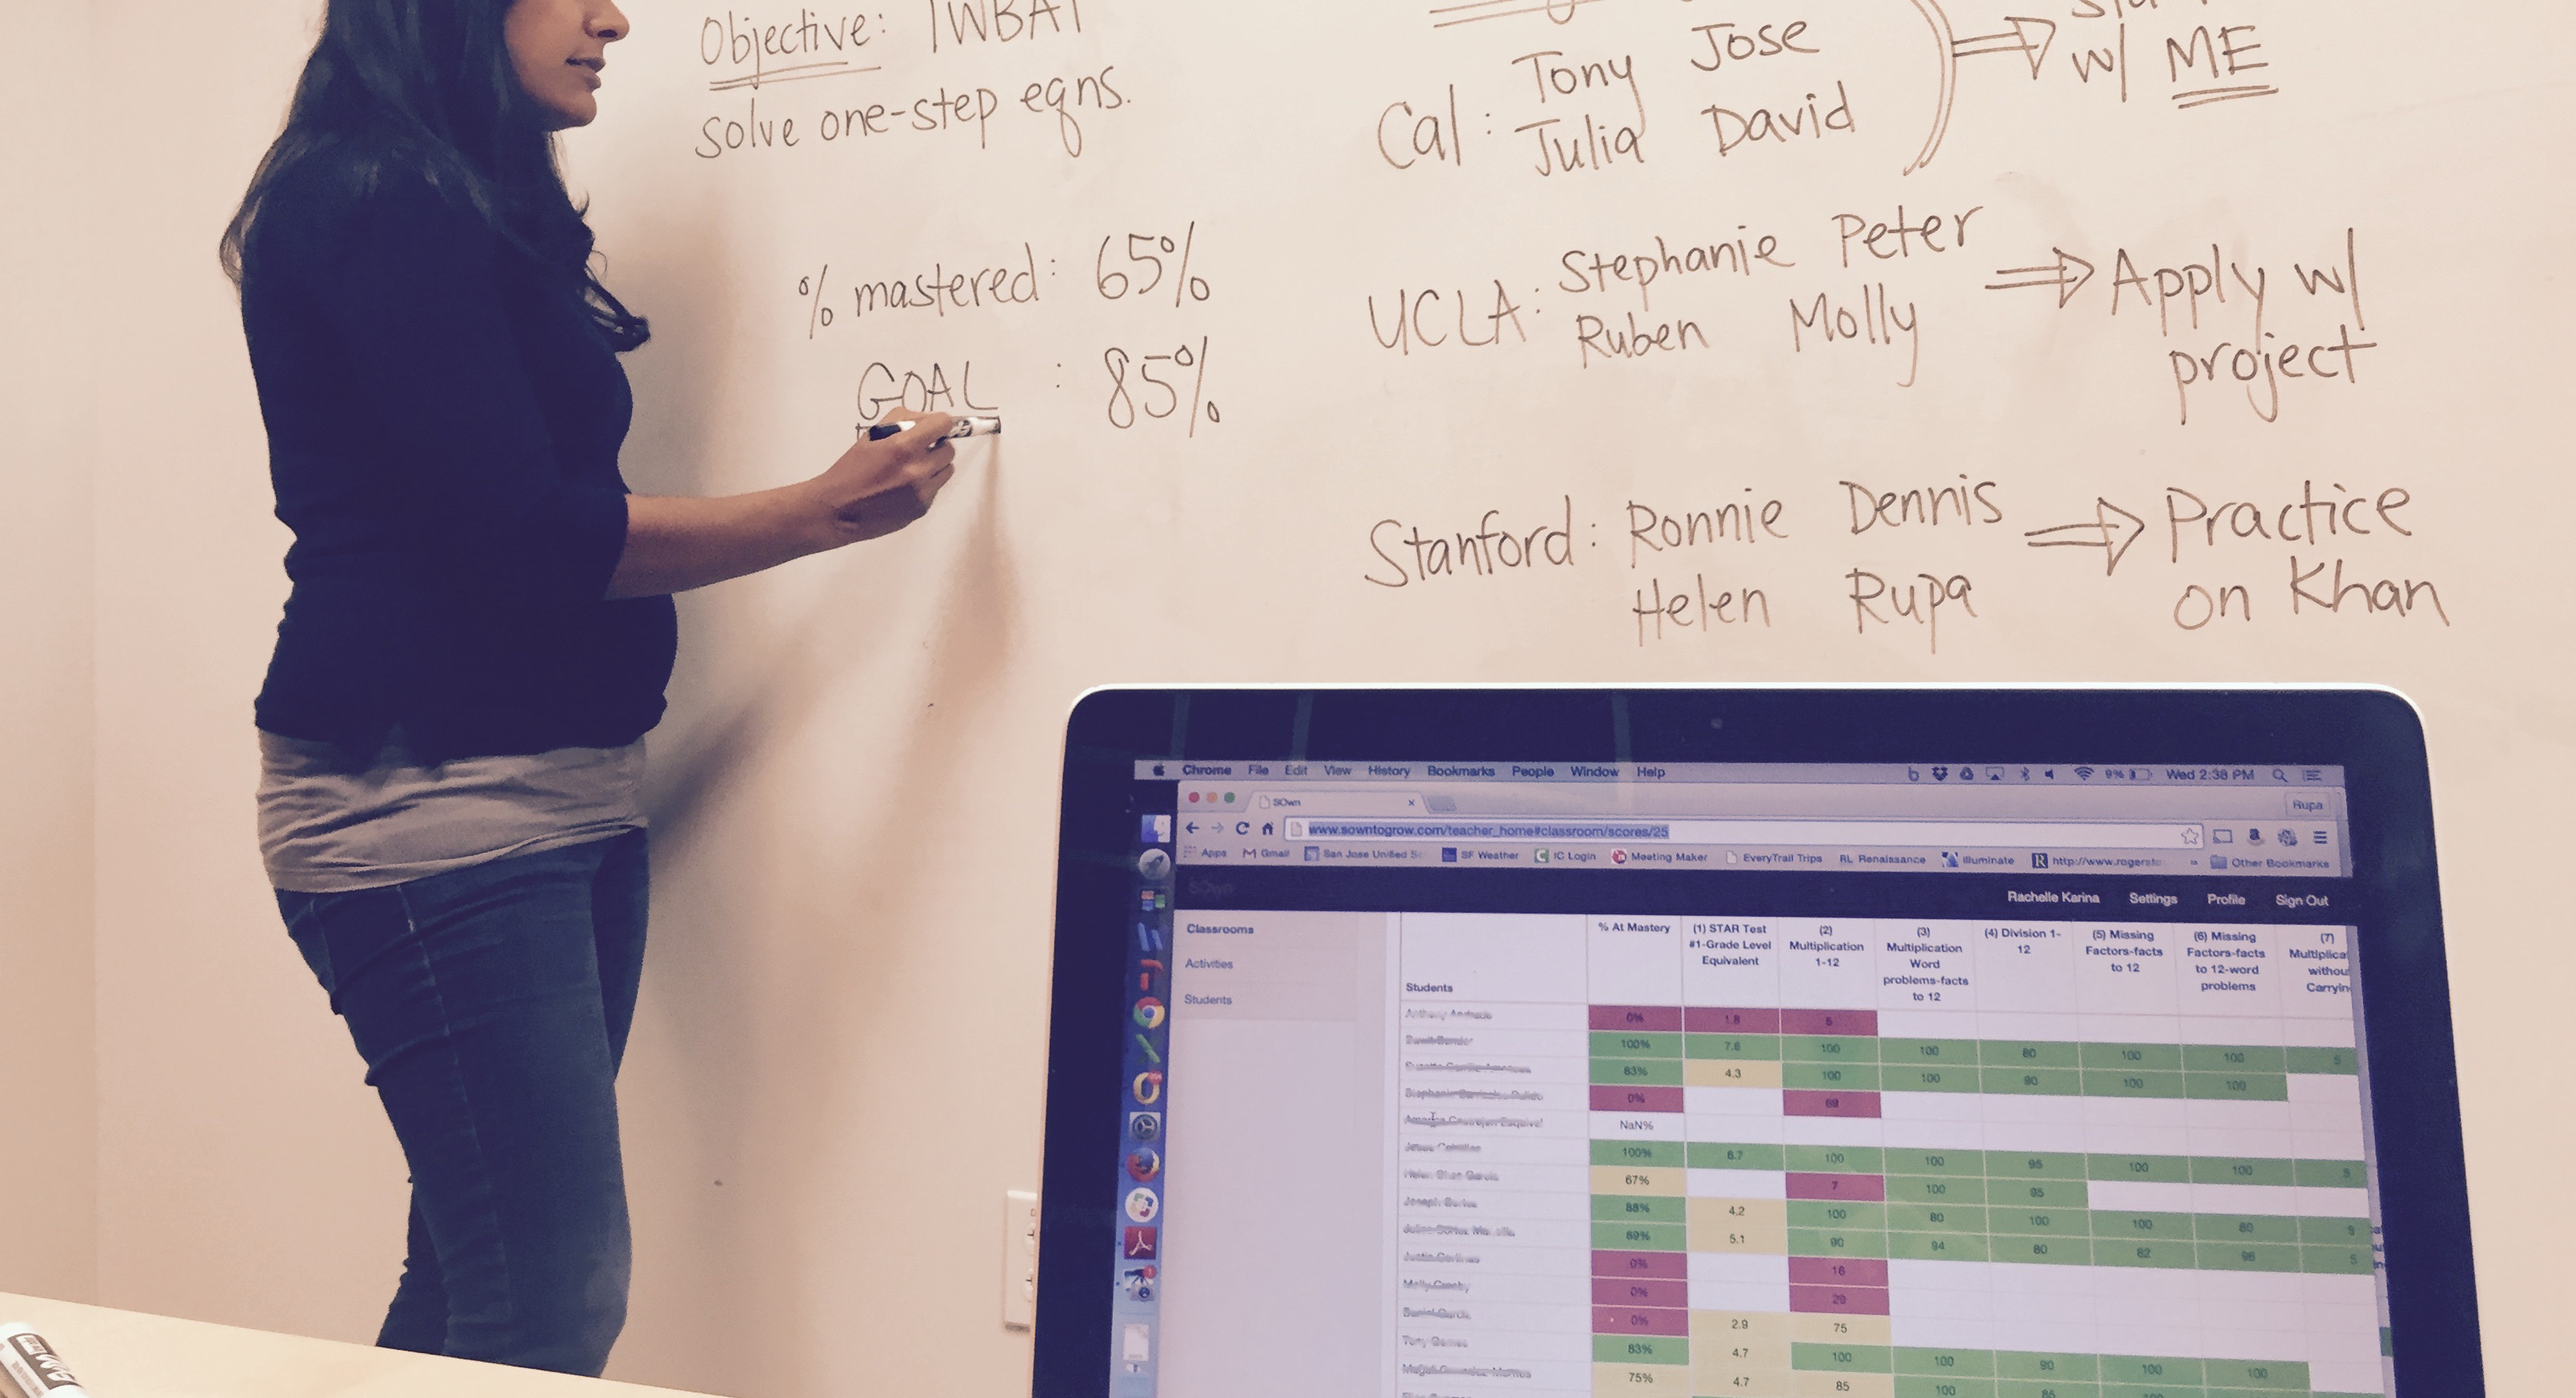 Objective: IWBAT
solve one-step eqns.
% mastered: 65%
GOAL : 85%
Tony Jose
Cal: Julia David
w/ ME
UCLA: Stephanie Peter
Ruben Molly
Apply w/
project
Stanford: Ronnie Dennis
Helen Rupa
Practice
on Khan
Chrome File Edit View History Bookmarks People Window Help 9% Wed 2:38 PM
SOwn Rupa
www.sowntogrow.com/teacher_home#classroom/scores/25
Apps Gmail San Jose Unified SF Weather IC Login Meeting Maker EveryTrail Trips RL Renaissance Illuminate Other Bookmarks
SOwn Rachelle Karina Settings Profile Sign Out
Classrooms
Activities
Students
Students
% At Mastery
(1) STAR Test
#1-Grade Level
Equivalent
(2)
Multiplication
1-12
(3)
Multiplication
Word
problems-facts
to 12
(4) Division 1-
12
(5) Missing
Factors-facts
to 12
(6) Missing
Factors-facts
to 12-word
problems
(7)
0% 1.8 5
100% 7.6 100 100 80 100 100
83% 4.3 100 100 90 100 100
0% 69
NaN%
100% 6.7 100 100 95 100 100
67% 7 100 95
88% 4.2 100 80 100 100
89% 5.1 90 94 80 82
0% 16
0% 29
0% 2.9 75
83% 4.7 100 100 90 100 100
75% 4.7 85 100